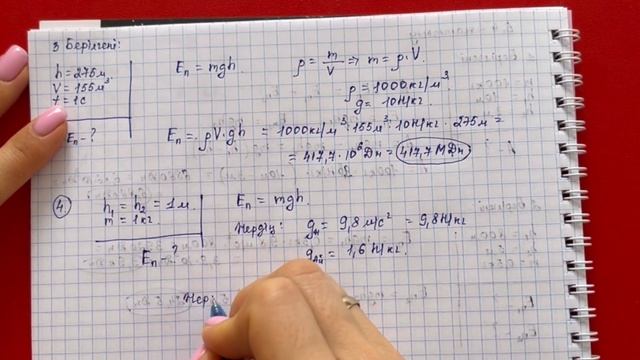 3 Берілгені:
h = 275м.
V = 155м³
t = 1c
Eп - ?
Eп = mgh
ρ = m/V ⇒ m = ρ·V.
ρ = 1000кг/м³
g = 10Н/кг.
Eп = ρV·gh = 1000кг/м³·155м³·10Н/кг·275м =
= 417,7·10⁶Дж = 417,7МДж
4.
h₁ = h₂ = 1м.
m = 1кг
Eп - ?
Eп = mgh.
gж = 9,8м/с² = 9,8Н/кг
gай = 1,6Н/кг.
Жер